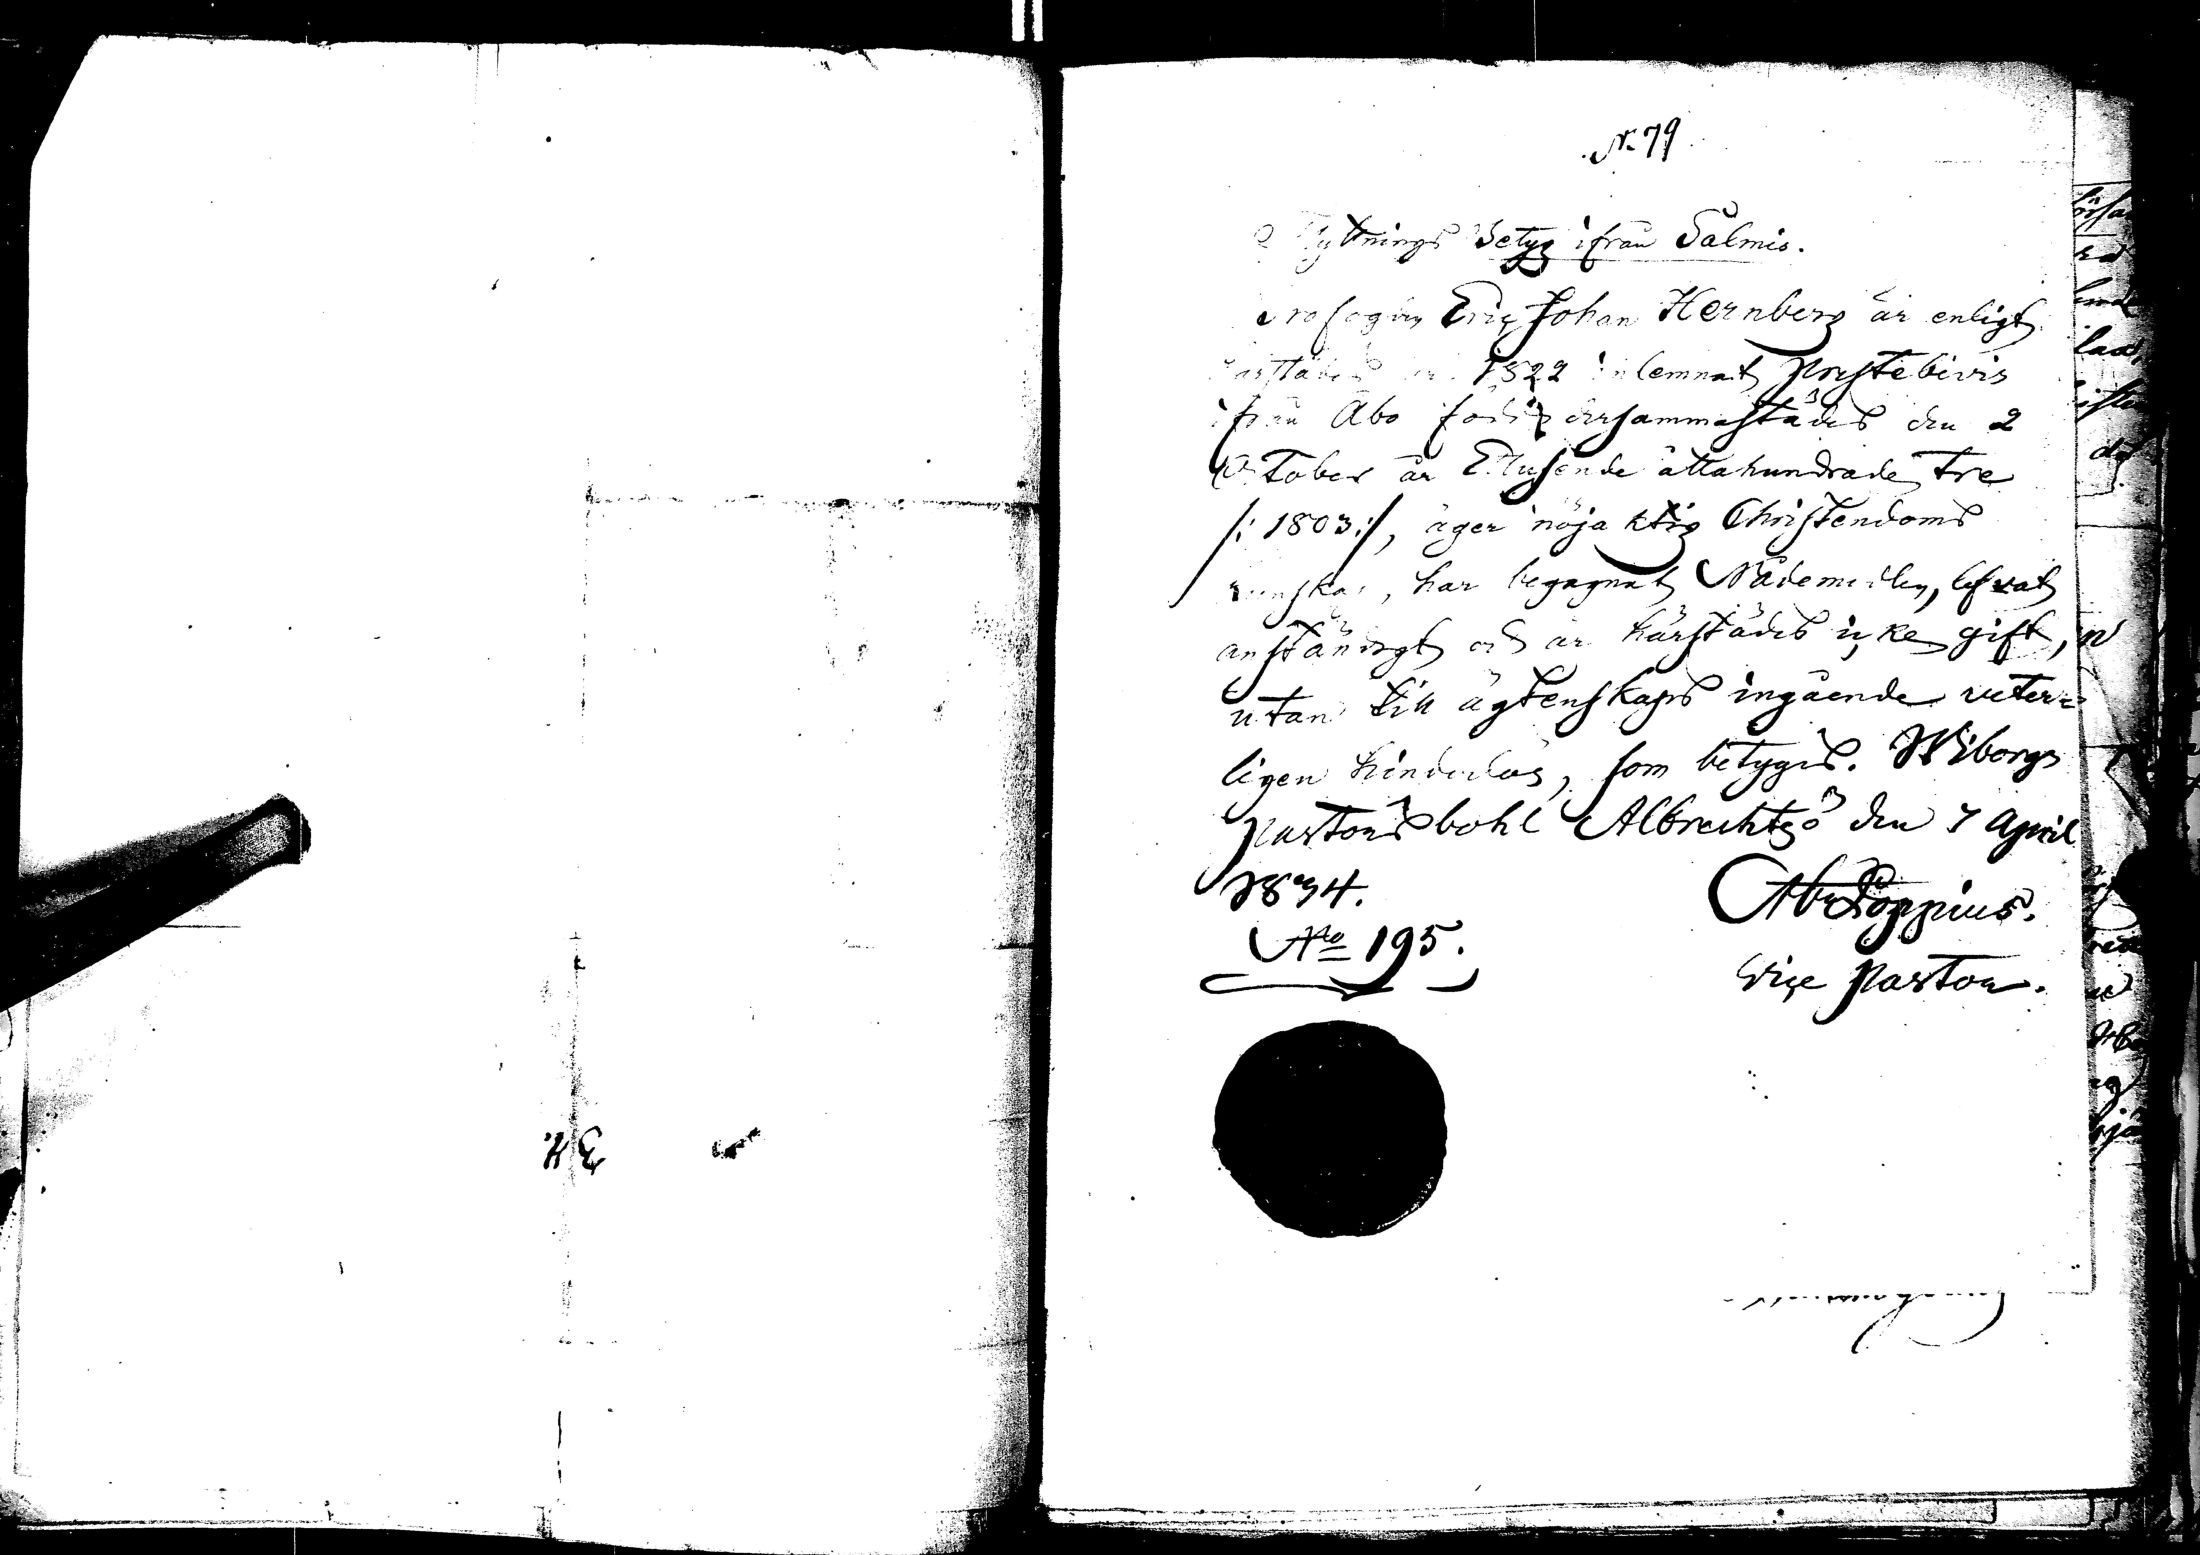 N. 79
Flyttnings Betyg ifrån Salmis.
Eric Johan Hernberg är enligt
1822 inlemnat Prestebevis
ifrån Åbo född dersammastädes den 2
October år Ettusende åttahundrade tre
/: 1803 :/, äger nöjaktig Christendoms
kunskap, har begagnat Nådemedlen, lefvat
anständigt och är härstädes icke gift,
utan till ägtenskaps ingående veter=
ligen hinderlös, som betygas. Wiborgs
Pastors bohl Albrechtsö den 7 April
1834.
Abr Poppius.
No 195.
Vice Pastor.
34.